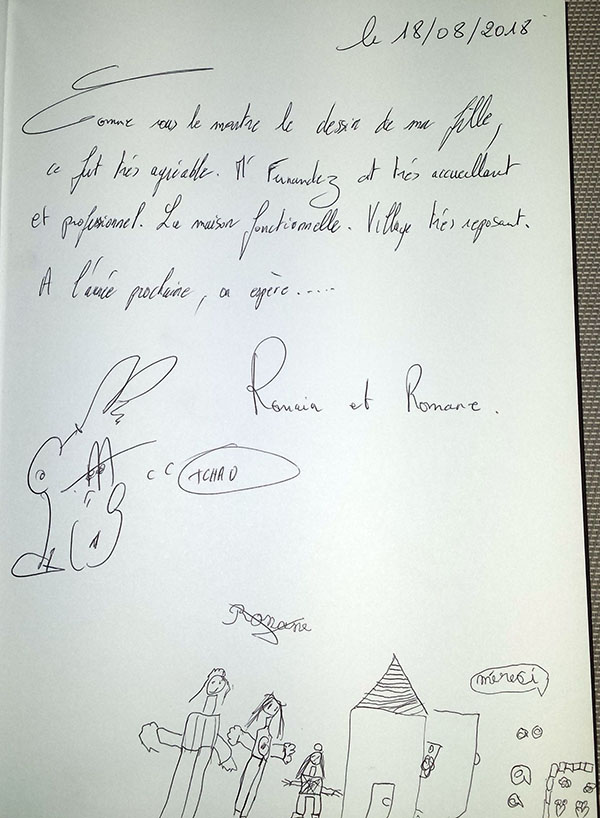 le 18/08/2018
Comme vous le montre le dessin de ma fille,
ce fut très agréable. Mr Fernandez est très accueillant
et professionnel. La maison fonctionnelle. Village très reposant.
A l'année prochaine, on espère.....
Romain et Romane.
TCHAO
Romane
meresi